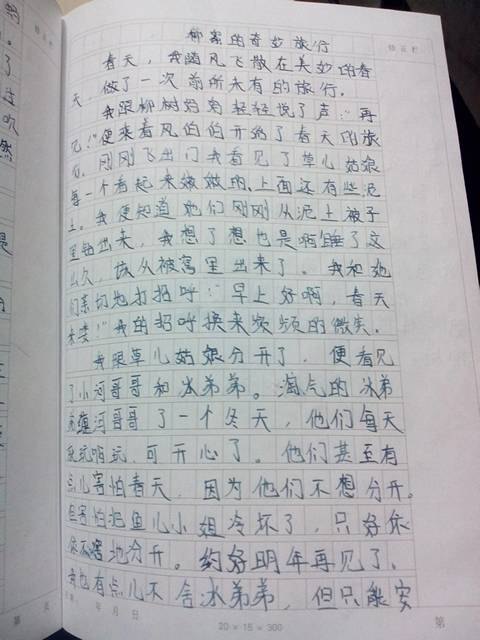 柳絮的奇妙旅行
春天，我随风飞散在美妙的春
天，做了一次前所未有的旅行。
我跟柳树妈妈轻轻说了声："再
见！"便乘着风伯伯开始了春天的旅
行。刚刚飞出门我看见了草儿姑娘
每一个看起来嫩嫩的，上面还有些泥
土。我便知道她们刚刚从泥土被子
里钻出来，我想了想也是啊睡了这
么久，该从被窝里出来了。我和她
们亲切地打招呼："早上好啊，春天
来喽！"我的招呼换来频频的微笑。
我跟草儿姑娘分开了，便看见
了小河哥哥和冰弟弟。淘气的冰弟
弟缠河哥哥了一个冬天，他们每天
玩啊玩，可开心了。他们甚至有
点儿害怕春天，因为他们不想分开。
但害怕把鱼儿小姐冷坏了，只好依
依不舍地分开。约好明年再见了。
我也有点儿不舍冰弟弟，但只能安
第 页
年 月 日
20 × 15 = 300
第